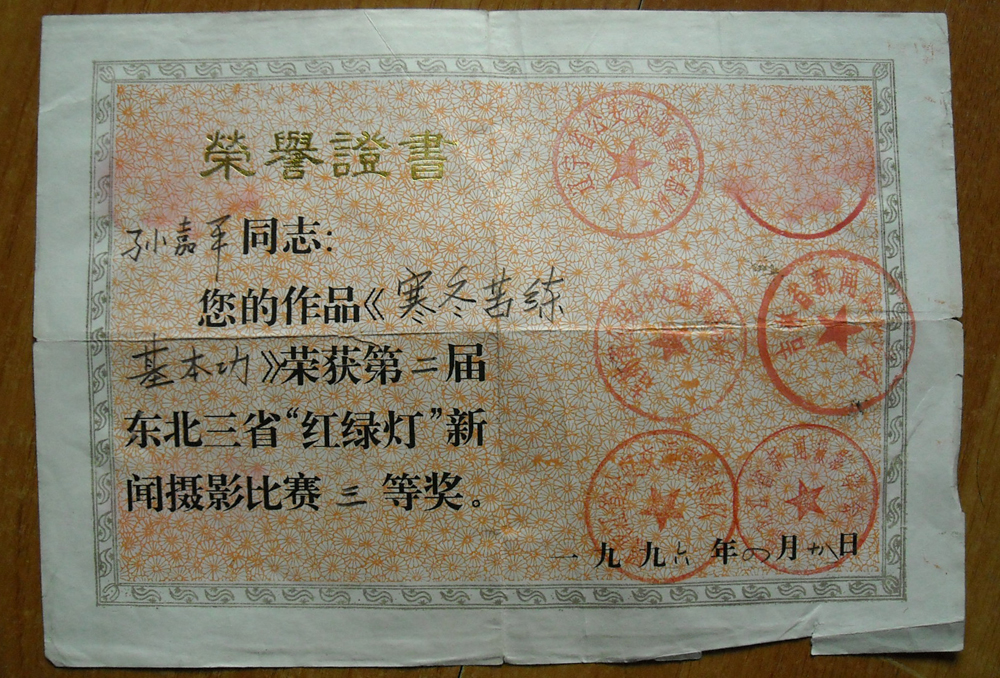 榮譽證書
孙嘉军同志：
您的作品《寒冬苦练
基本功》荣获第二届
东北三省“红绿灯”新
闻摄影比赛三等奖。
一九九六年四月十八日